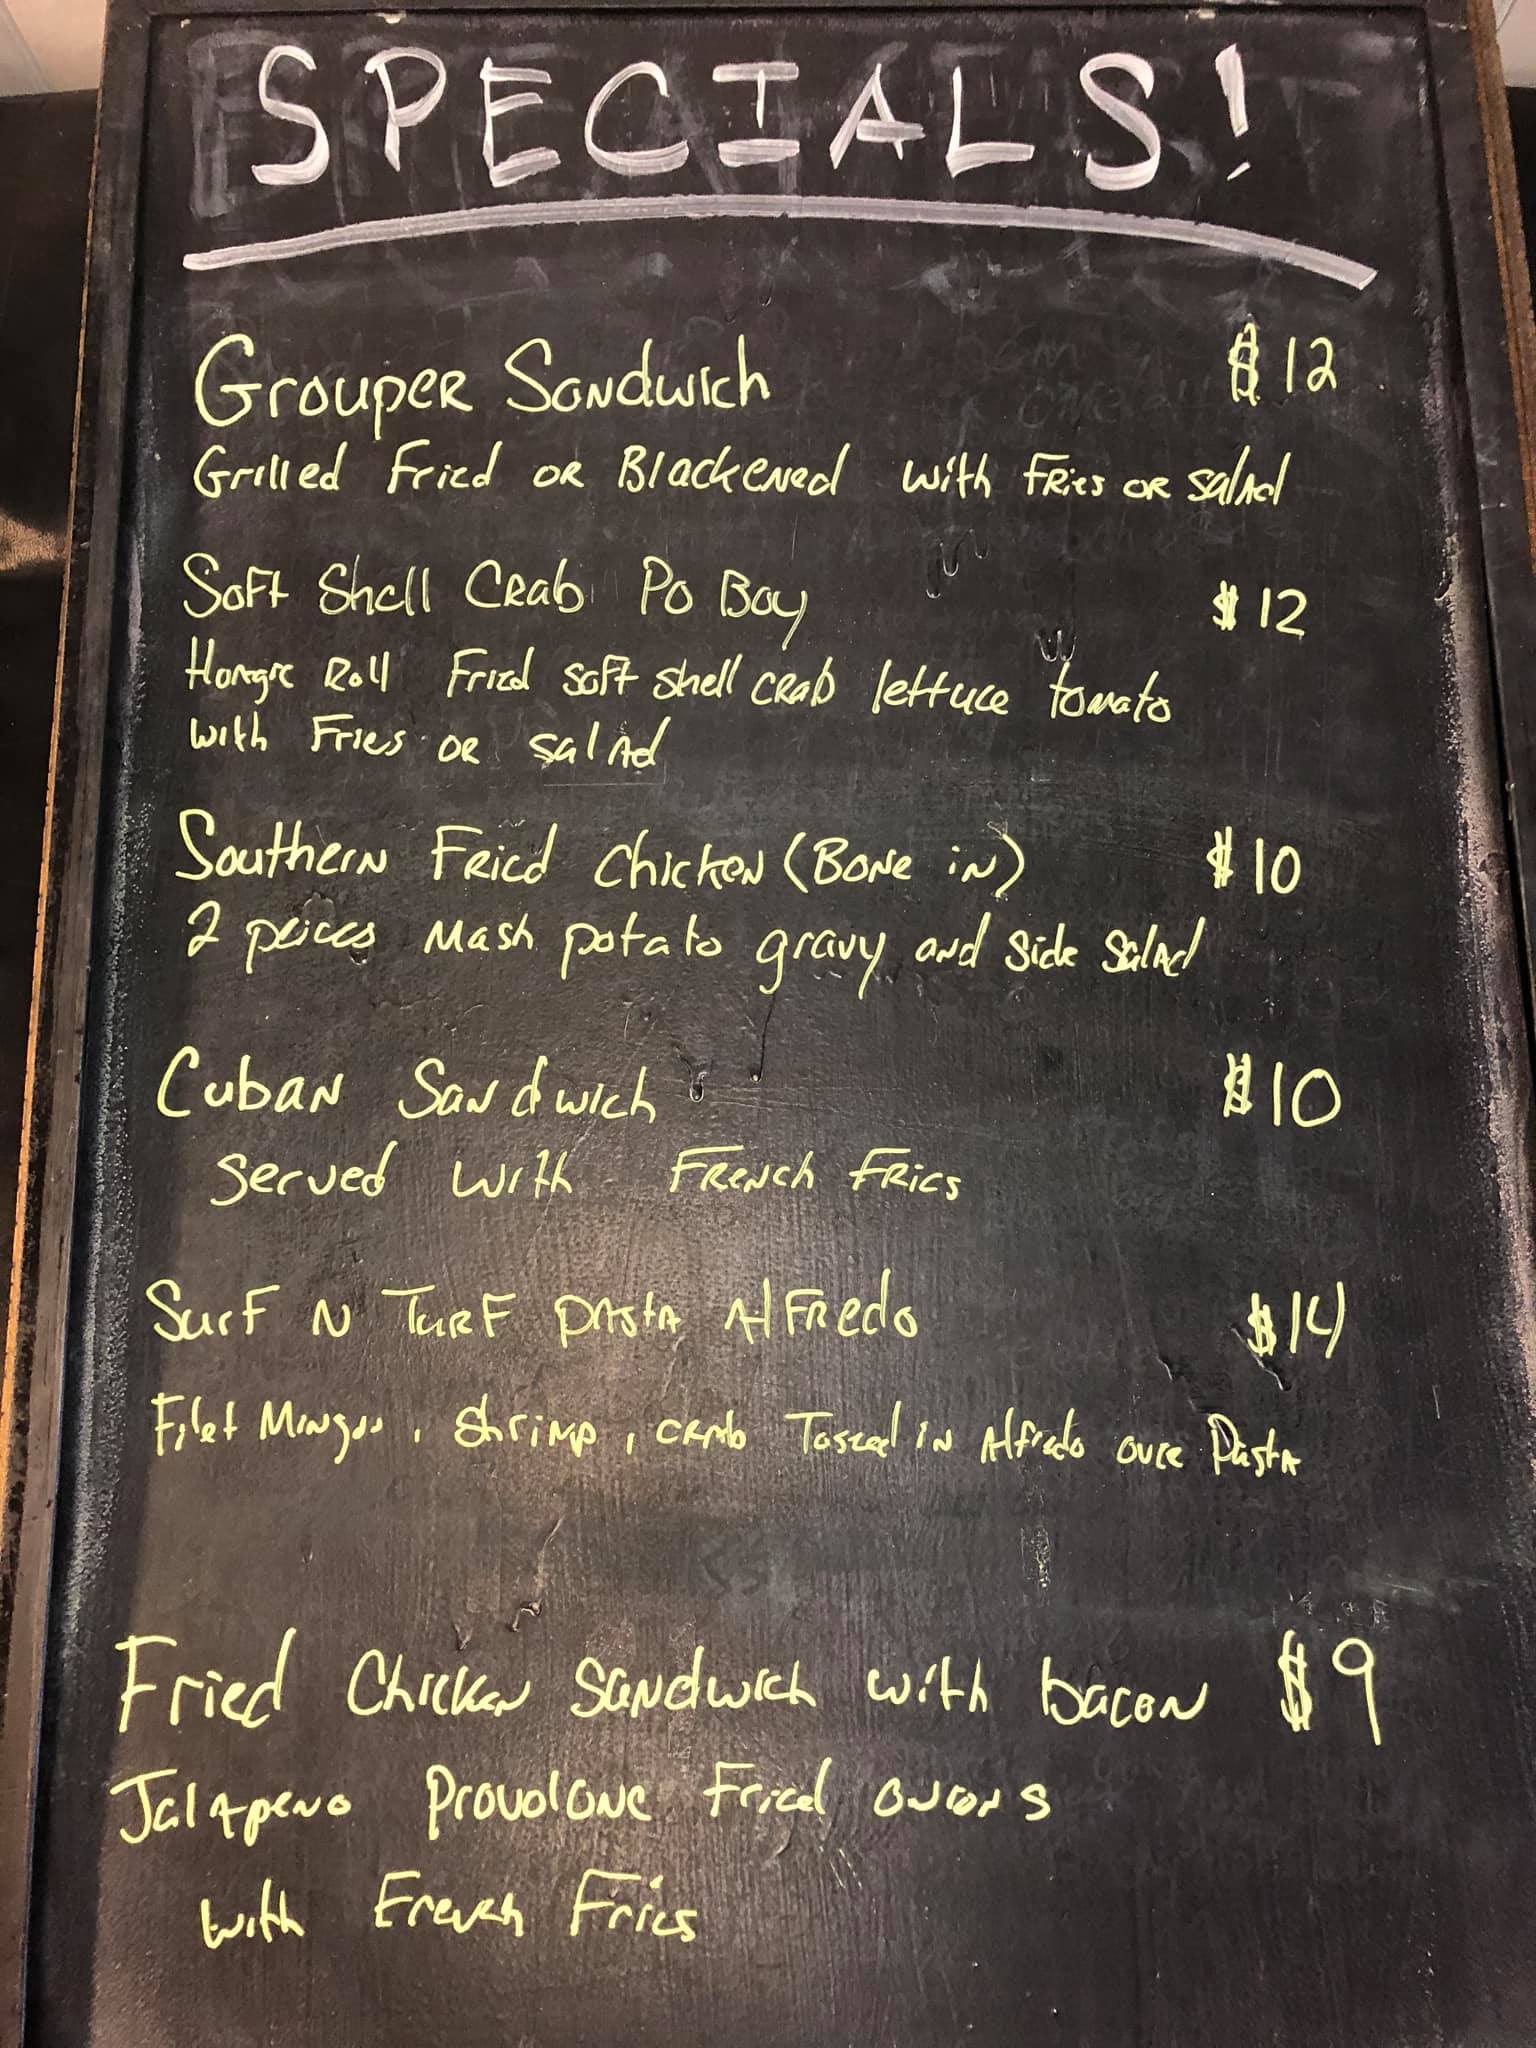 SPECIALS!
Grouper Sandwich $12
Grilled Fried or Blackened with Fries or salad
Soft Shell Crab Po Boy $12
Hoagie Roll Fried soft shell crab lettuce tomato
with Fries or salad
Southern Fried Chicken (Bone in) $10
2 peices Mash potato gravy and side salad
Cuban Sandwich $10
Served with French Fries
Surf N Turf Pasta Alfredo $14
Filet , Shrimp, crab in Alfredo over Pasta
Fried Chicken Sandwich with bacon $9
Jalapeno Provolone Fried onions
with French Fries